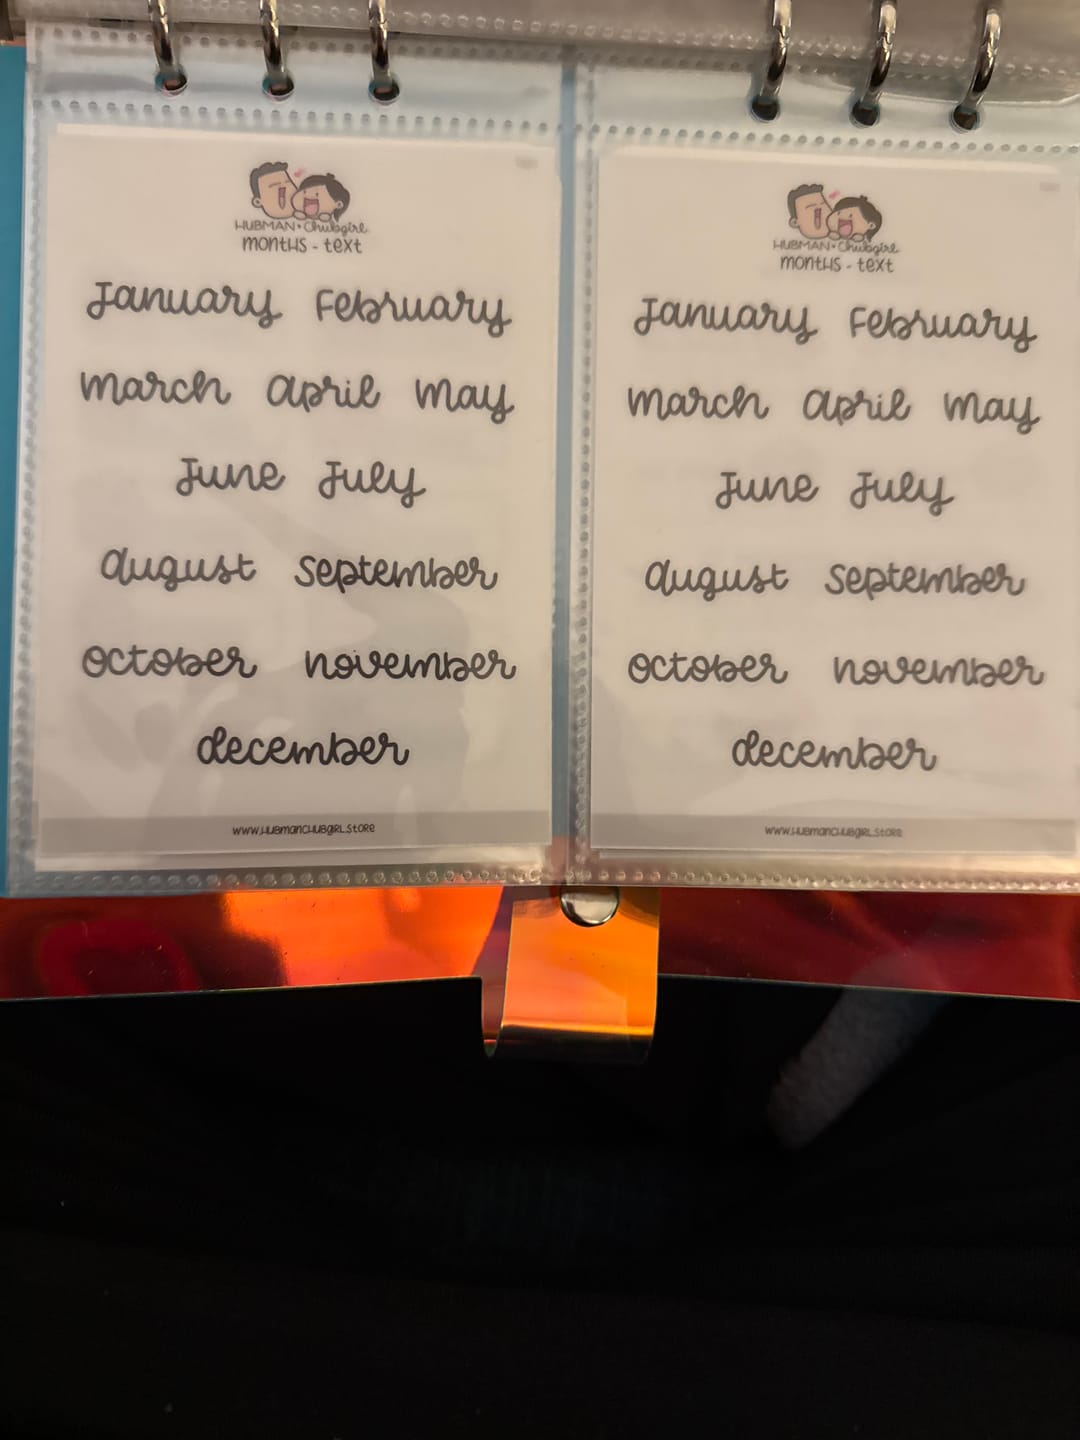 HUBMAN × Chubgirl
months - text
January February
march april may
June July
august september
october november
december
www.HUBMANCHUBGIRL.STORE
HUBMAN × Chubgirl
months - text
January February
march april may
June July
august september
october november
december
www.HUBMANCHUBGIRL.STORE